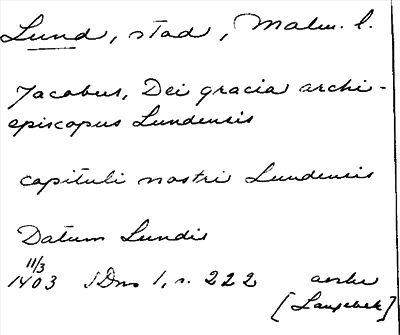 Lund, stad, Malm. l.
Jacobus, Dei gracia archi-
episcopus Lundensis
capituli nostri Lundensis
Datum Lundis
11/3
1403 SDns 1, s. 222
[Langebek]